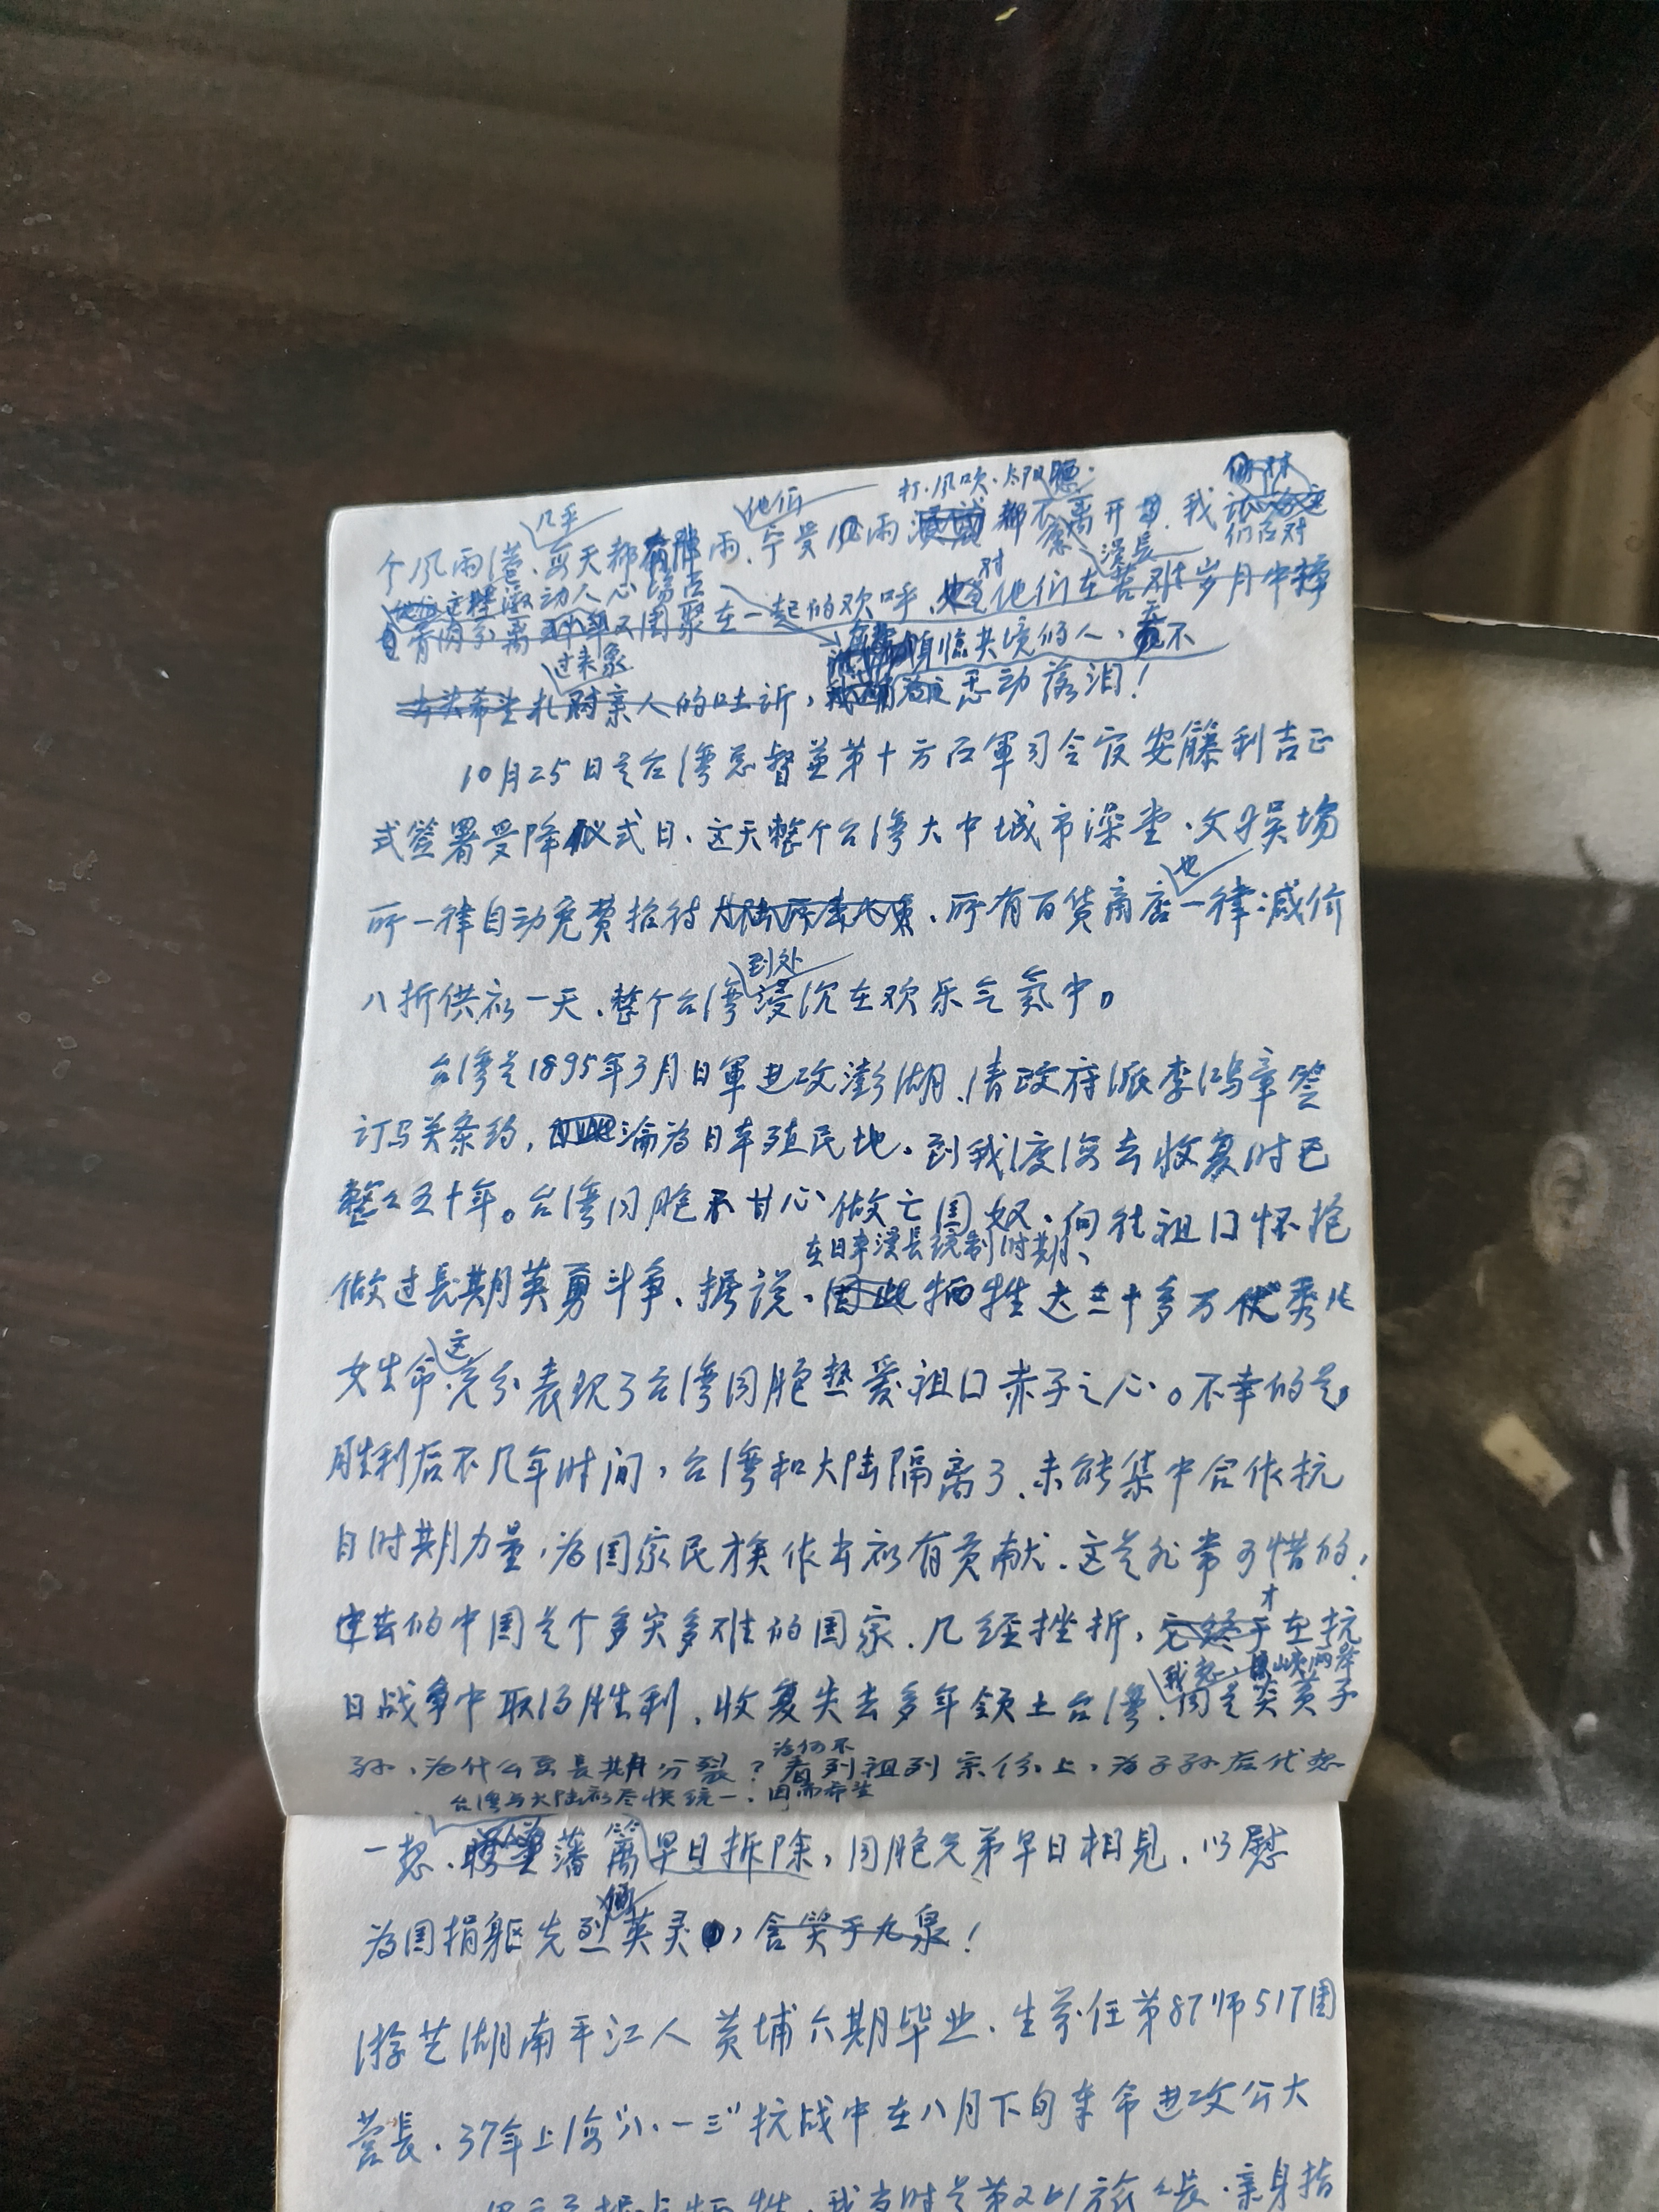 打.风吹.太阳晒.
几乎
他们
个风雨港、每天都有阵雨、宁受风雨都不愿离开、我
们应对
漫长
这些激动人心场点
对
骨肉分离又团聚在一起的欢呼、他们在苦难岁月中
身临其境的人、无不
过来象
亲人的吐诉,感动落泪!
10月25日是台湾总督兼第十方面軍司令官安藤利吉正
式签署受降仪式日、这天整个台湾大中城市澡堂、文娱場
也
所一律自动免费招待、所有百货商店一律减价
到处
八折供应一天、整个台湾浸沉在欢乐气氛中。
台湾是1895年3月日軍進攻澎湖、清政府派李鸿章签
订马关条约,沦为日本殖民地、到我渡海去收复时已
整々五十年。台湾同胞不甘心做亡国奴、向往祖囗怀抱
在日本漫長统制时期、
做过長期英勇斗争、据说、牺牲达三十多万优秀儿
这
女生命充分表现了台湾同胞热爱祖囗赤子之心。不幸的是,
胜利后不几年时间,台湾和大陆隔离了、未能集中合作抗
日时期力量,为国家民族作出应有贡献、这是非常可惜的,
才
过去的中国是个多灾多难的国家、几经挫折,在抗
我想、海峡两岸
日战争中取得胜利、收复失去多年领土台湾、同是炎黄子
为何不
孙,为什么要長期分裂?看列祖列宗份上,为子孙后代想
台湾与大陆应尽快统一、因而希望
一想、藩篱早日拆除,同胞兄弟早日相見、以慰
为国捐躯先烈英灵,含笑于九泉!
游艺湖南平江人 黄埔六期毕业、生前任第87师517团
营長、37年上海“八·一三”抗战中在八月下旬奉命進攻公大
牺牲、我当时是第261旅旅長、亲身指